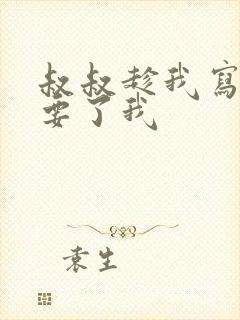 叔叔趁我寫
要了我
袁生